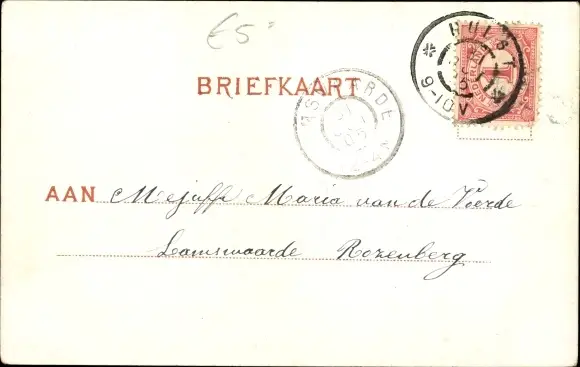 €5
BRIEFKAART
HULST
9-10V
1
AAN Mejuffr Maria van de Voorde
Lamswaarde Rozenberg